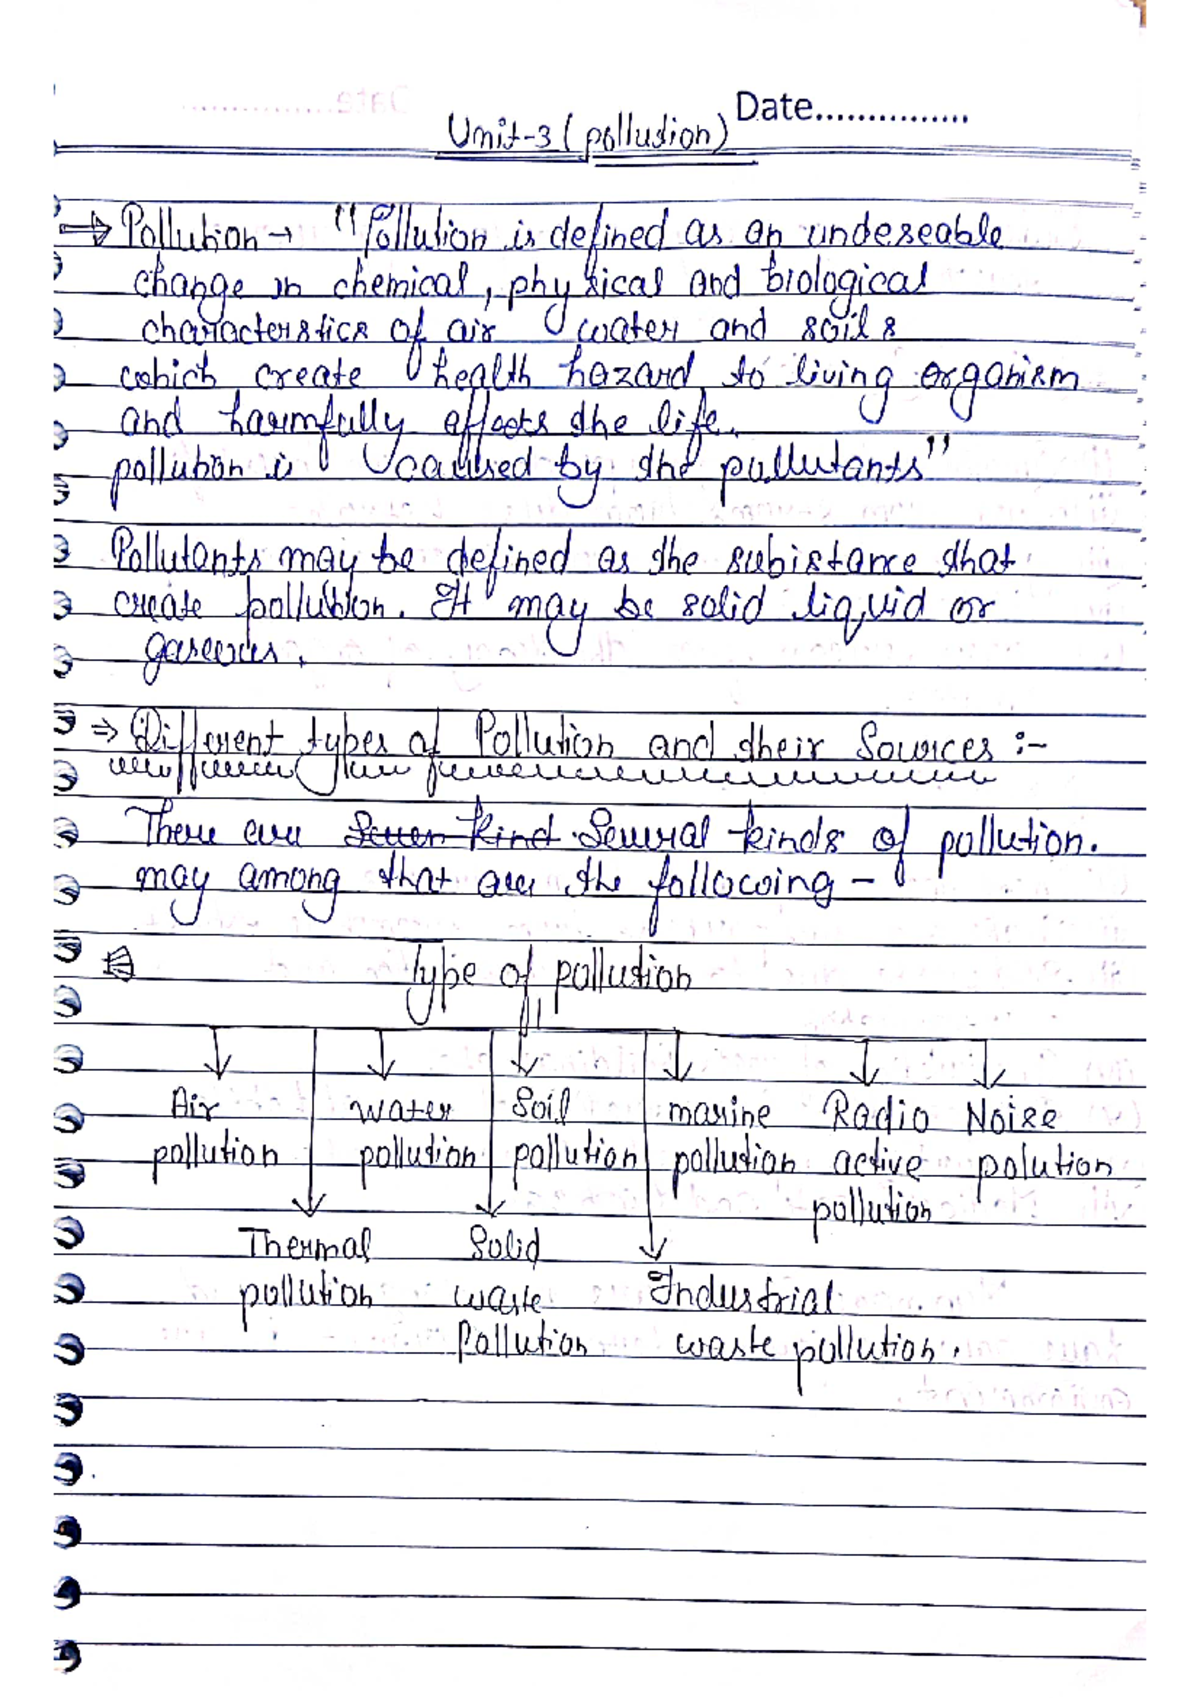 Date...............
Unit-3 (pollution)
⇒ Pollution → "Pollution is defined as an undeseable
change in chemical, physical and biological
characteristics of air water and soils
which create health hazard to living organism
and harmfully effects the life.
pollution is caused by the pollutants"
Pollutants may be defined as the subistance that
create pollution. It may be solid liquid or
gaseous.
⇒ Different types of Pollution and their Sources :-
There are Seven kind Several kinds of pollution.
may among that are the following -
Type of pollution
Air water Soil marine Radio Noise
pollution pollution pollution pollution active polution
pollution
Thermal Solid
pollution waste Industrial
Pollution waste pollution.